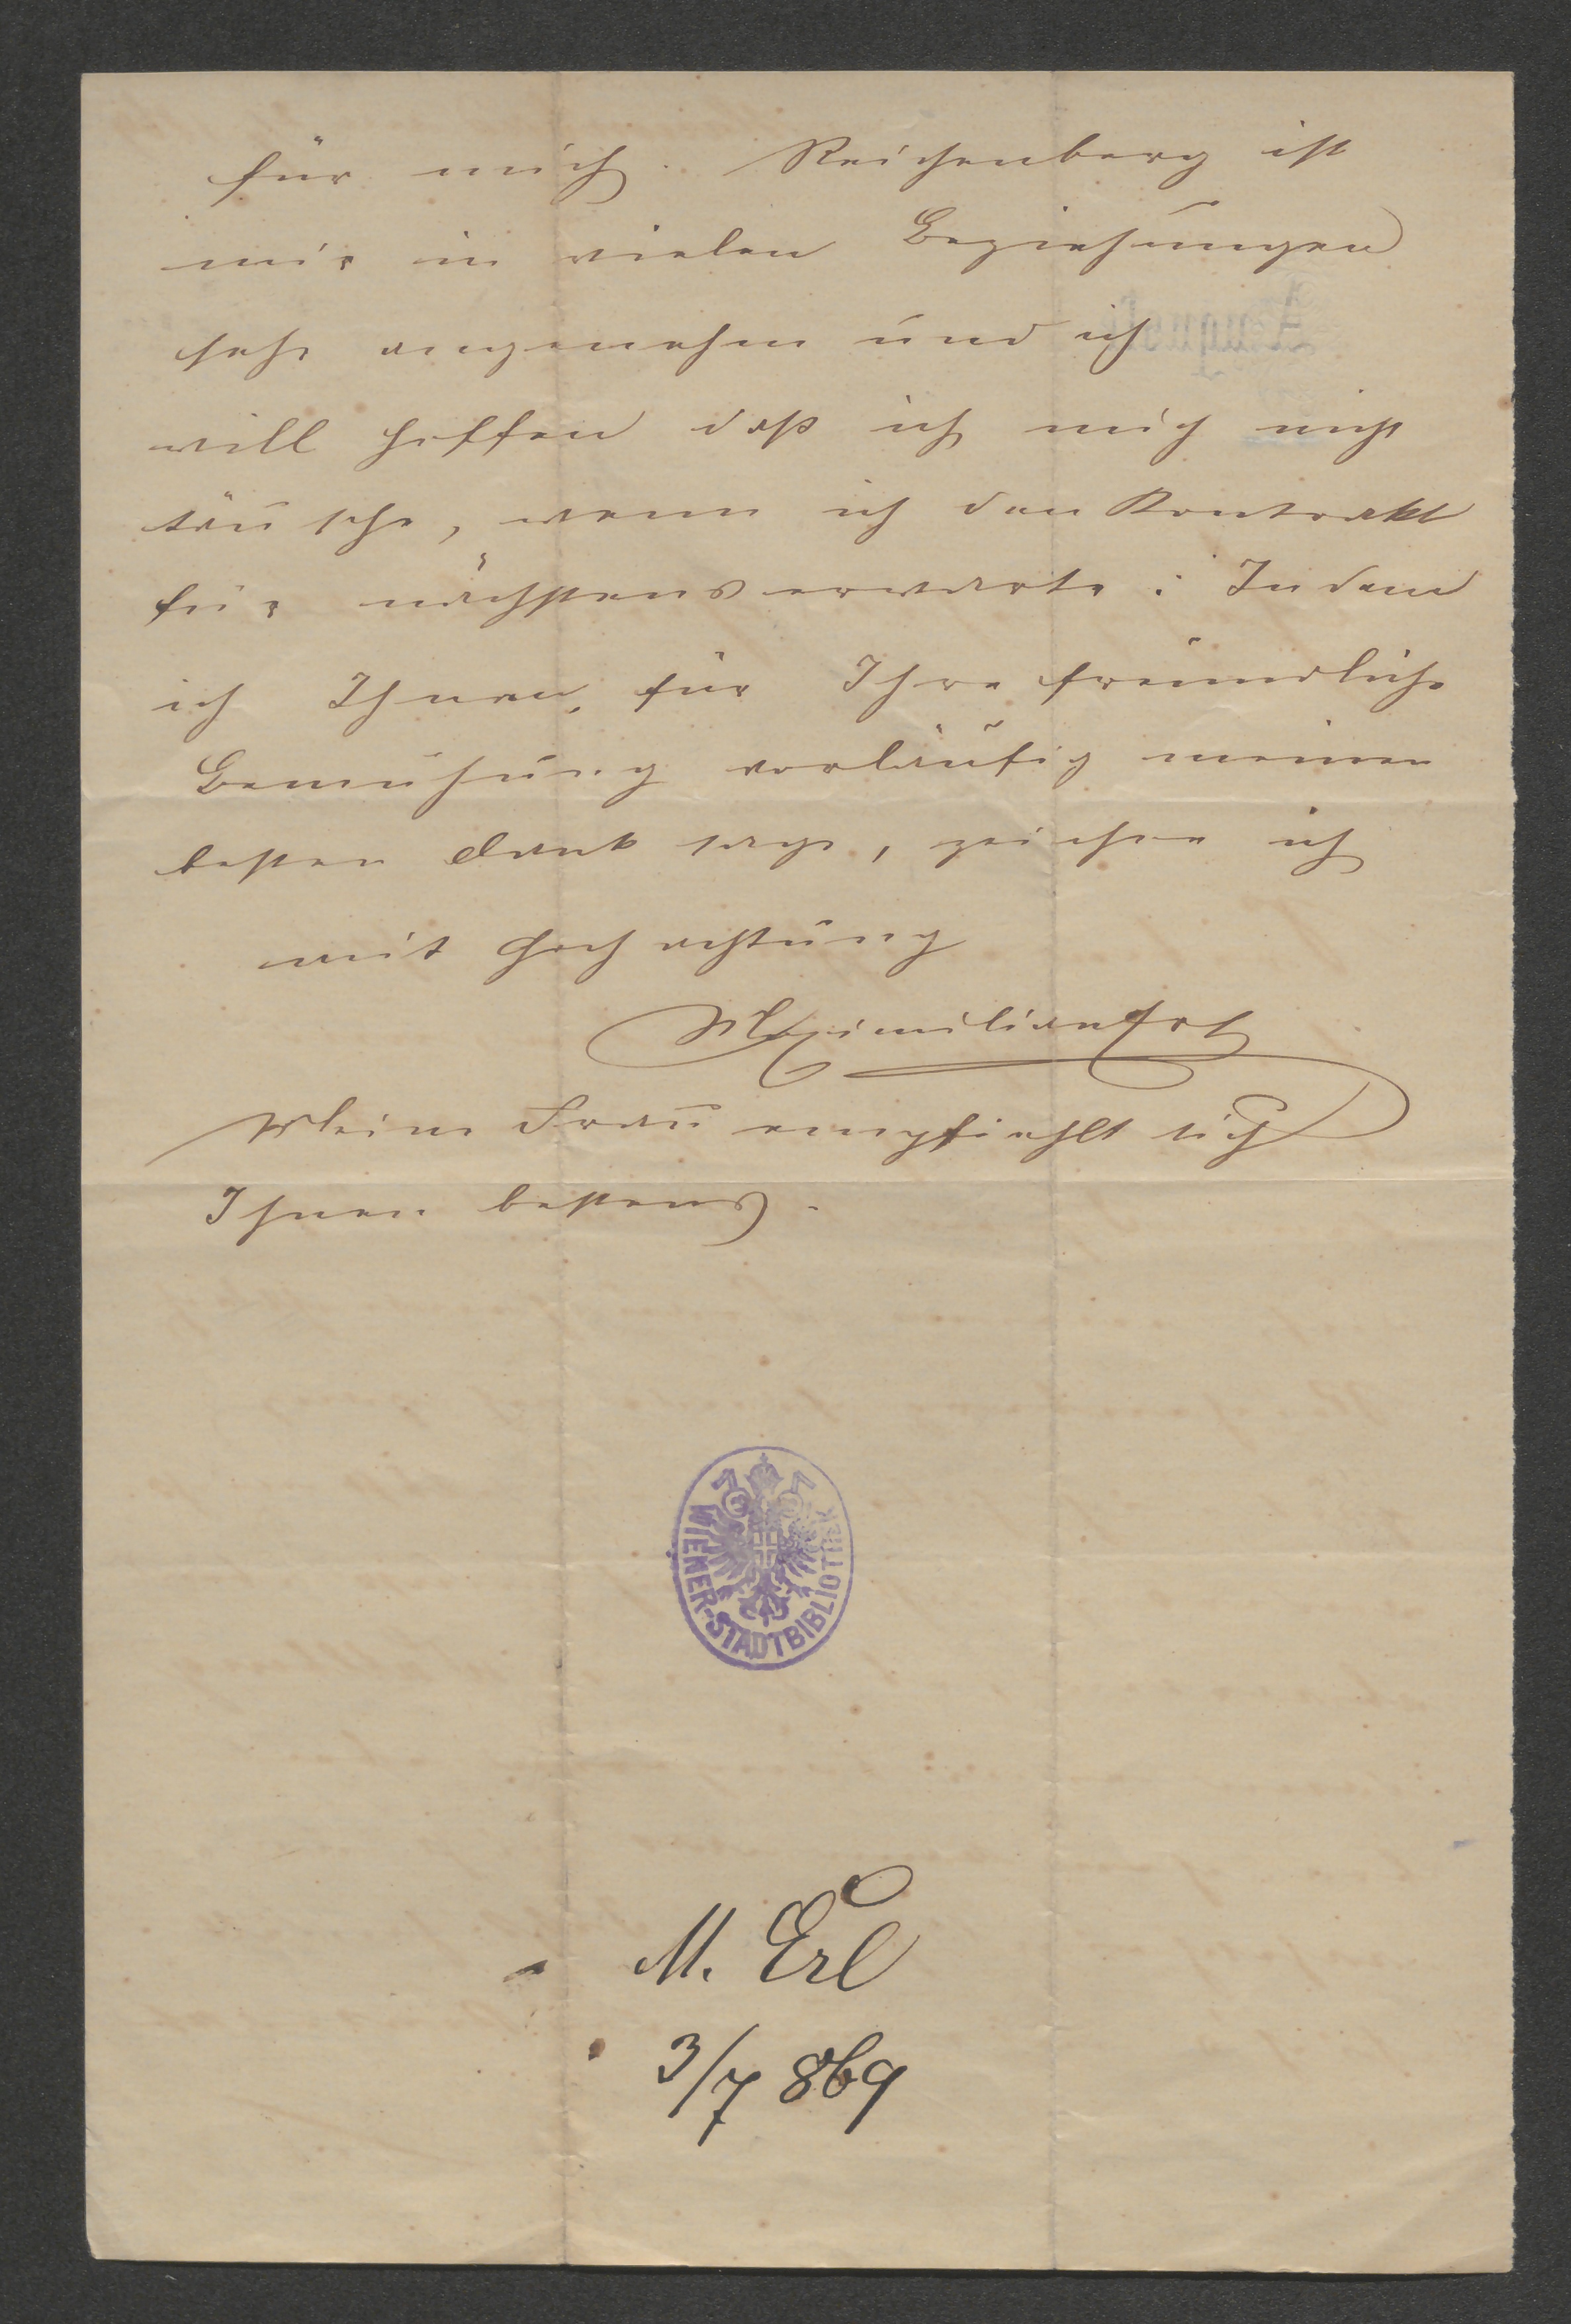 für mich. Reichenberg ist
mir in vielen Beziehungen
sehr angenehm und ich
will hoffen daß ich mich nicht
täusche, wenn ich den Kontrakt
für nächstens erwarte. Indem
ich Ihnen, für Ihre freundliche
Bemühung vorläufig meinen
besten Dank sage, zeichne ich
mit Hochachtung
Maximilian Erl
Meine Frau empfiehlt sich
Ihnen bestens.
WIENER-STADTBIBLIOTHEK
M. Erl
3/7 869